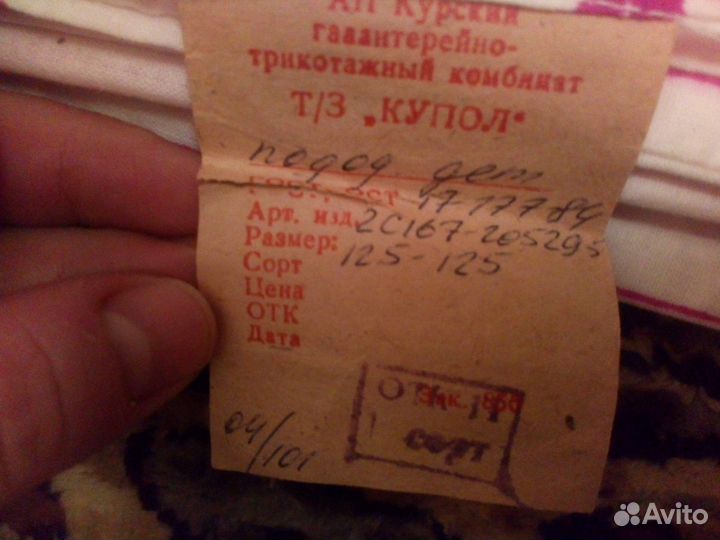 АП Курский
галантерейно-
трикотажный комбинат
Т/З „КУПОЛ“
подод. дет
ГОСТ, ОСТ 17 177 84
Арт. изд. 2С167-205295
Размер: 125-125
Сорт
Цена
ОТК
Дата
Зак. 856
ОТК 11
сорт
04/101
Avito